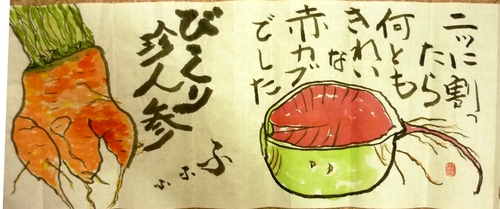 二ッに割っ
たら
何とも
きれい
な
赤カブ
でした
びっくり
珍人参
ふ
ふ
ふ